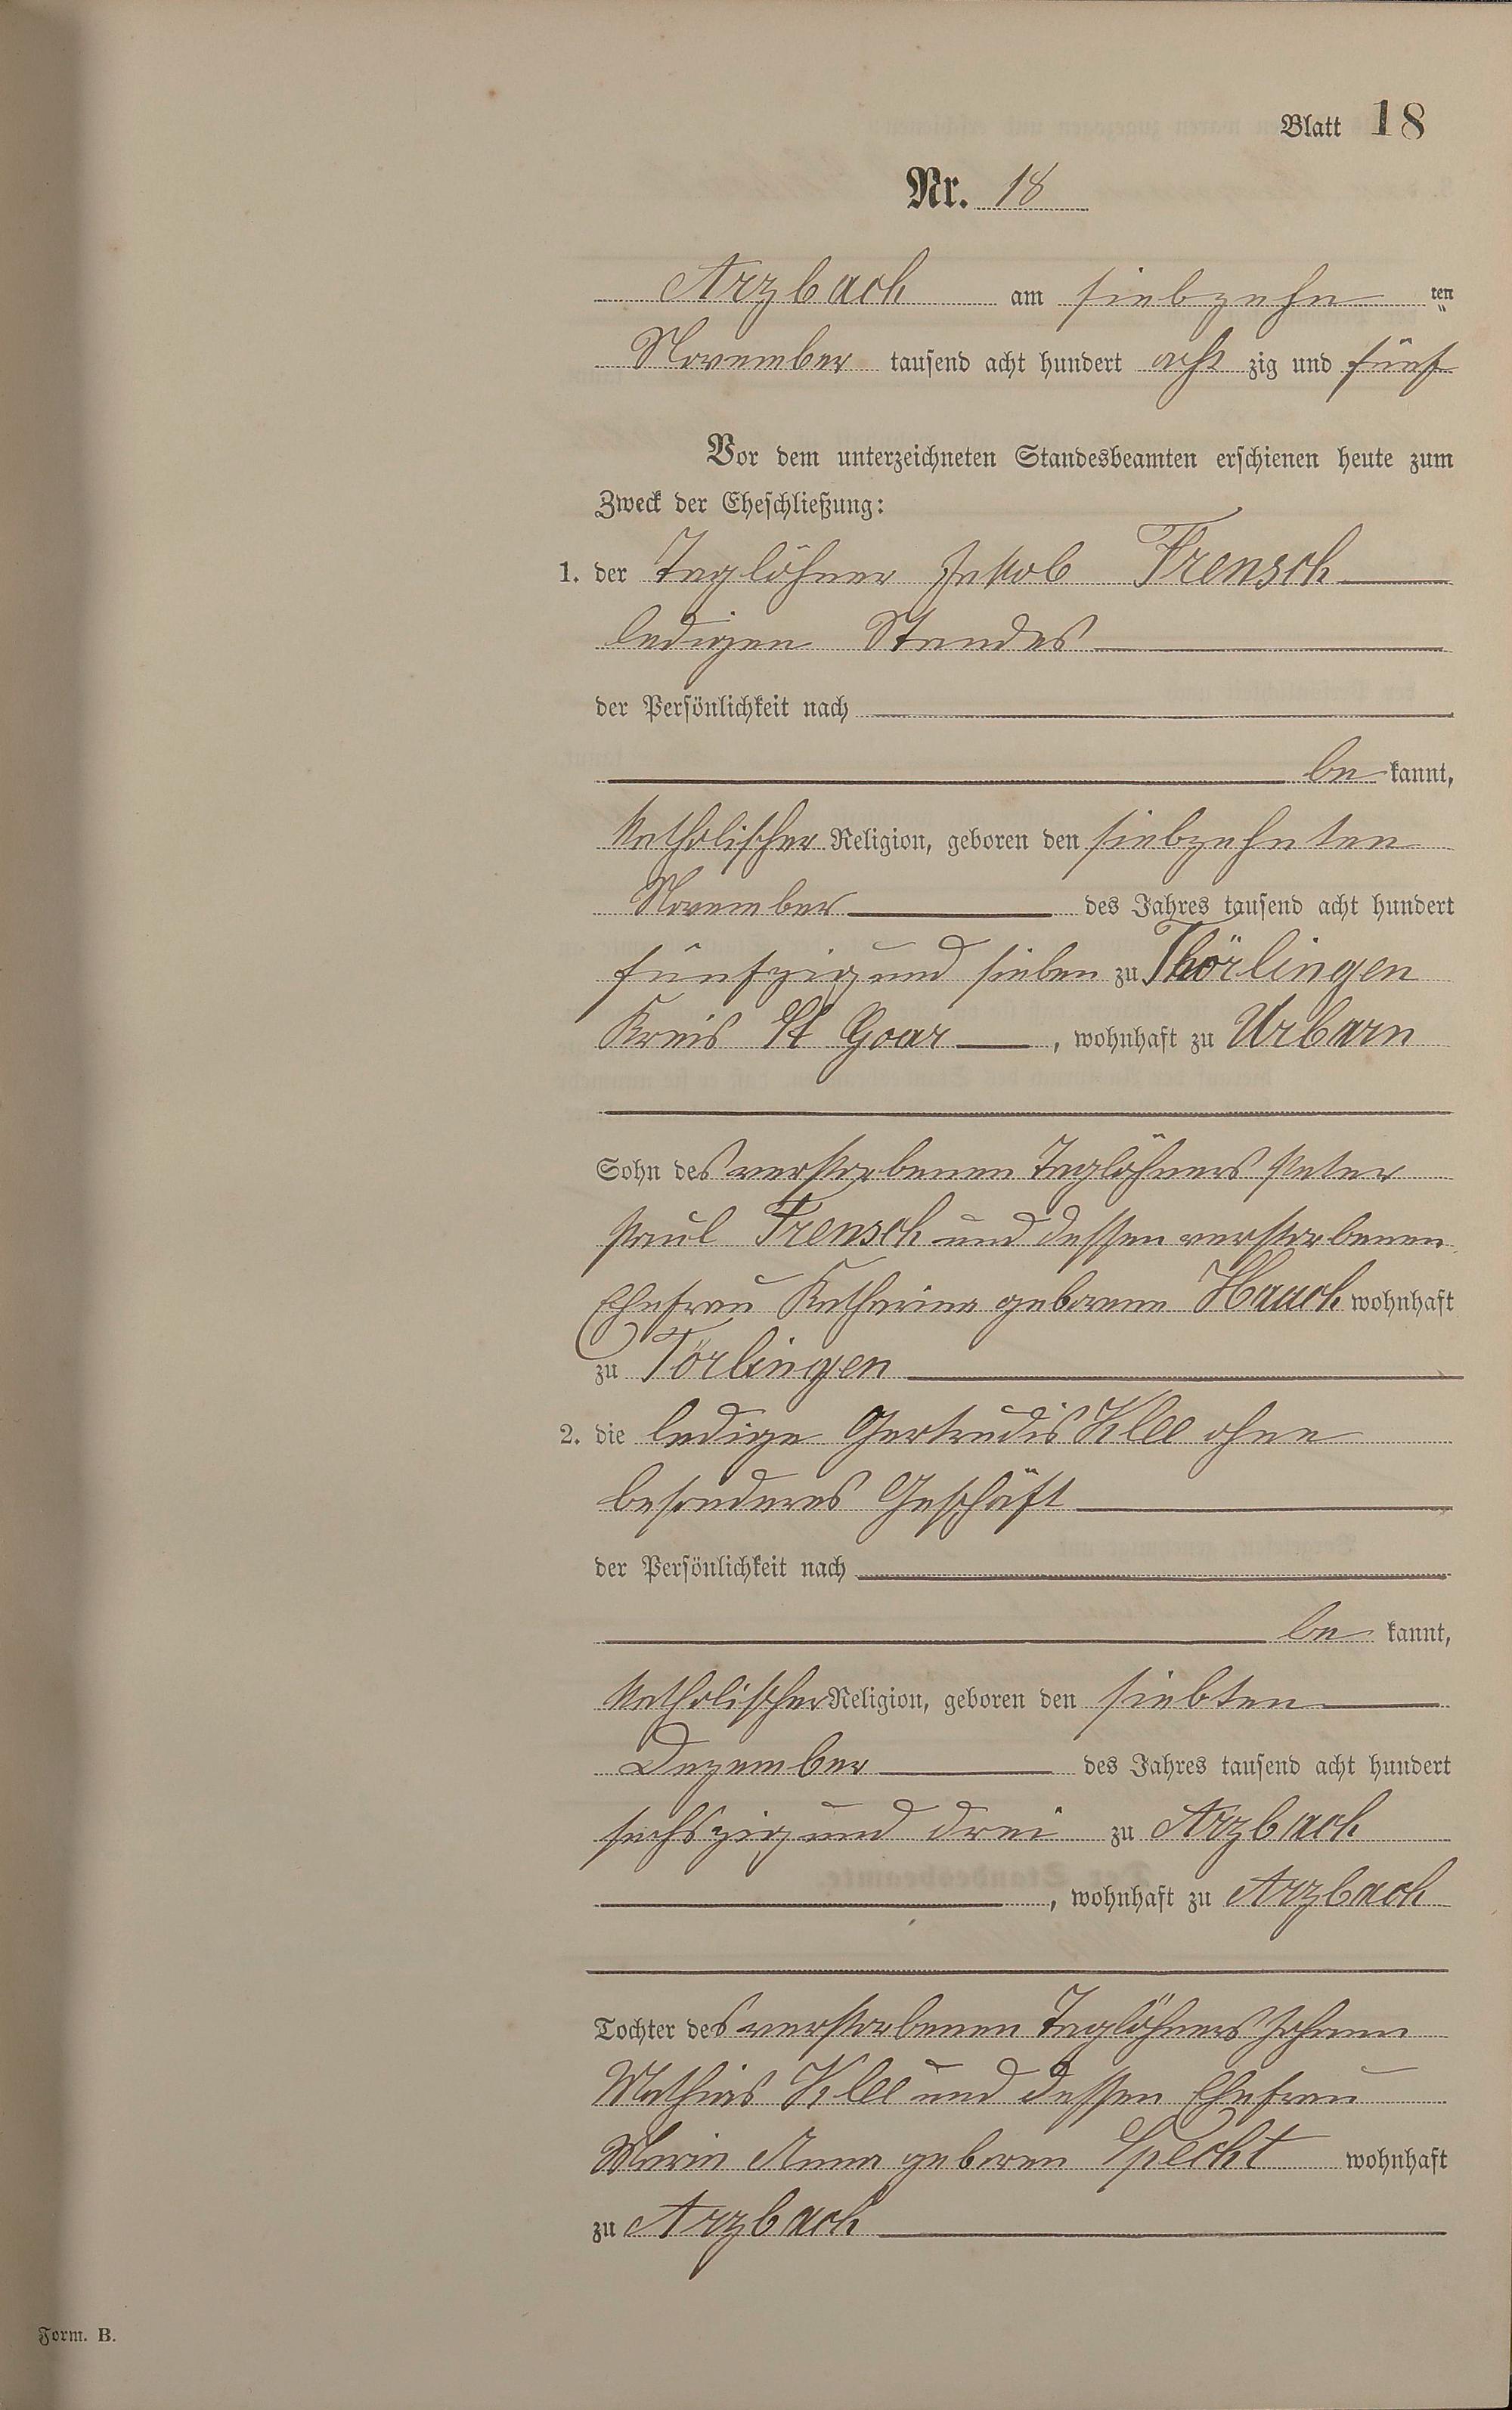 Blatt 18
Nr. 18
Arzbach am siebzehn ten
November tausend acht hundert acht zig und fünf
Vor dem unterzeichneten Standesbeamten erschienen heute zum
Zweck der Eheschließung:
1. der Taglöhner Jakob Frensch
ledigen Standes
der Persönlichkeit nach
be kannt,
katholischer Religion, geboren den siebzehnten
November des Jahres tausend acht hundert
fünfzig und sieben zu Thörlingen
Kreis St Goar, wohnhaft zu Urbarn
Sohn des verstorbenen Taglöhners Peter
Paul Frensch und dessen verstorbenen
Ehefrau Katharina geborene Hauch wohnhaft
zu Törlingen
2. die ledige Gertrudis Klee ohne
besonderes Geschäft
der Persönlichkeit nach
be kannt,
katholischer Religion, geboren den siebten
Dezember des Jahres tausend acht hundert
sechszig und drei zu Arzbach
, wohnhaft zu Arzbach
Tochter des verstorbenen Taglöhners Johann
Mathias Klee und dessen Ehefrau
Maria Anna geboren Specht wohnhaft
zu Arzbach
Form. B.